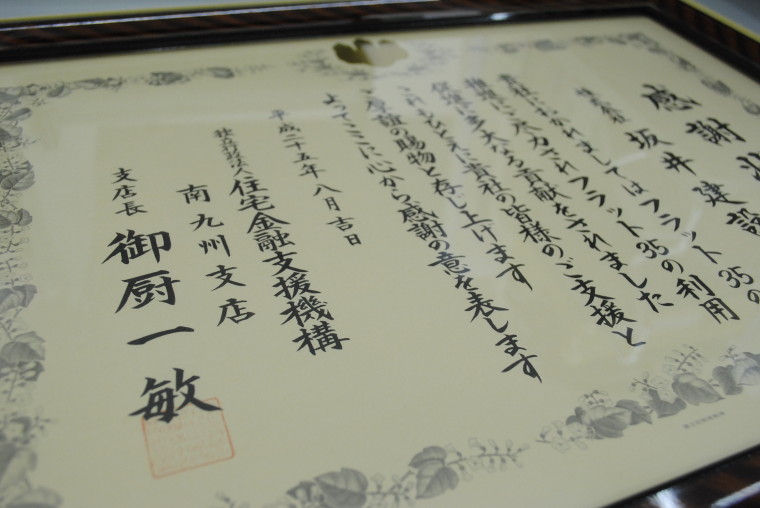 感謝状
坂井建設
貴社におかれましてはフラット35の
推進にご尽力されフラット35の利用
促進に多大なる貢献をされました
これもひとえに貴社の皆様のご支援と
ご尽力の賜物と存じ上げます
よってここに心から感謝の意を表します
平成二十五年八月吉日
住宅金融支援機構
南九州支店
支店長 御厨一敏